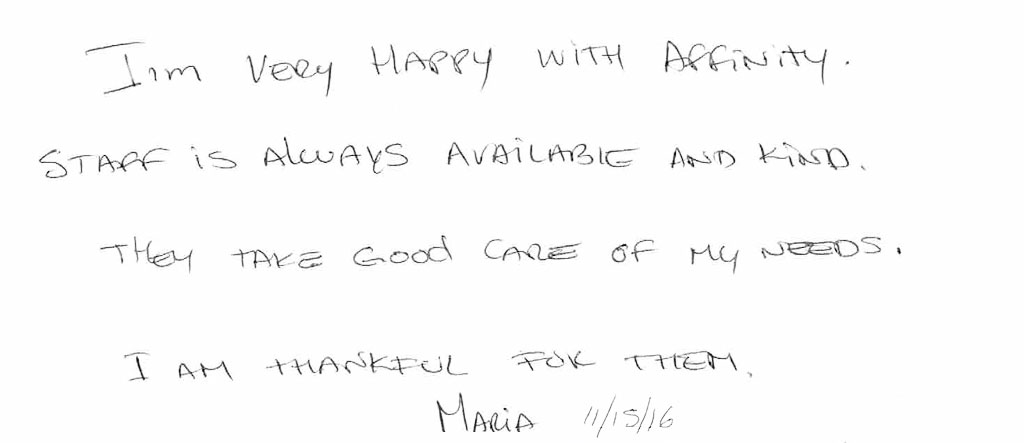 I'm VERY HAPPY WITH AFFINITY.
STAFF is AlWAYS AVAiLABLE AND KIND.
THey TAKE GOOd CARE OF MY NEEDS.
I AM THANKFUL FOR THEM.
MARiA 11/15/16